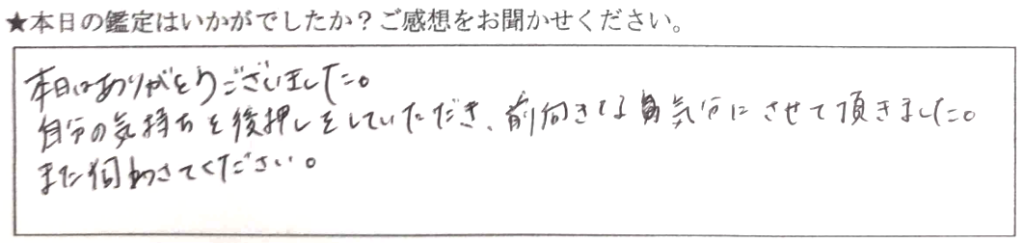 ★本日の鑑定はいかがでしたか？ご感想をお聞かせください。
本日はありがとうございました。
自分の気持ちを後押しをしていただき、前向きな気分にさせて頂きました。
また伺わさてください。